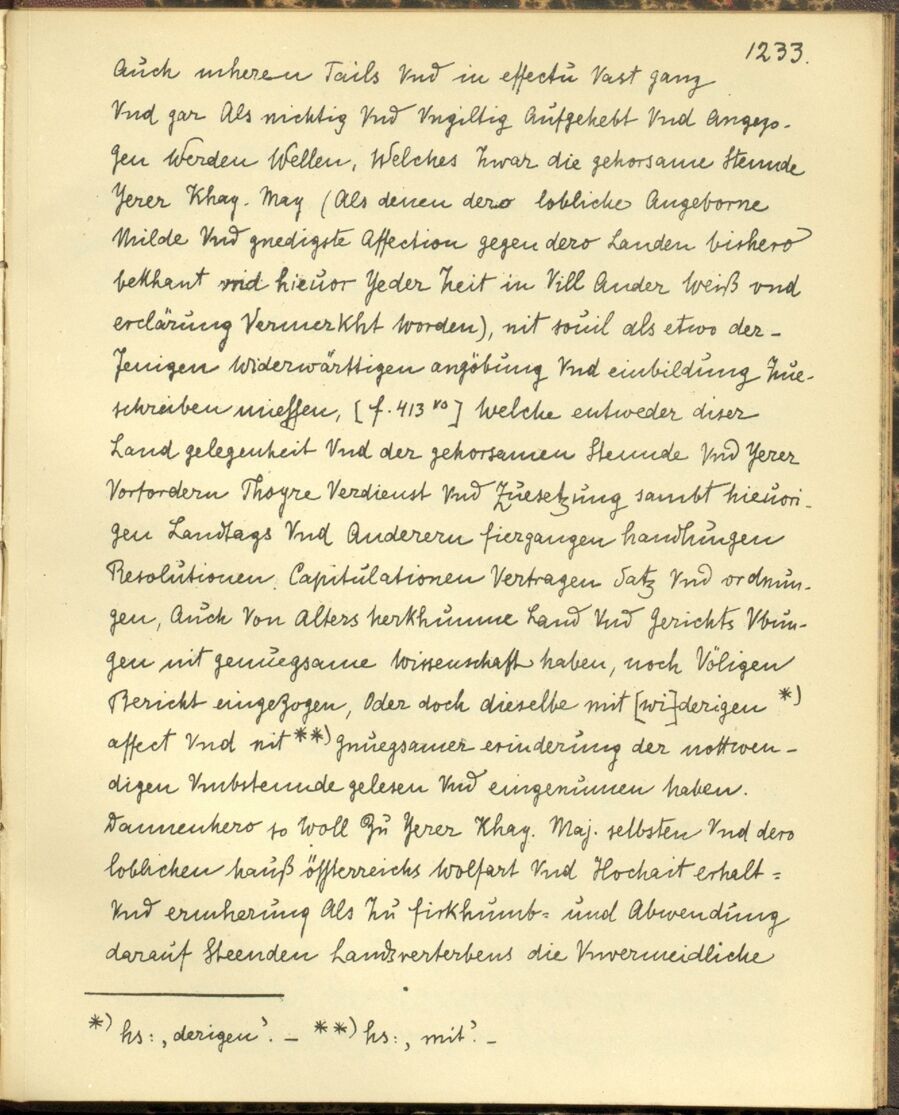 1233.
Auch mheren Tails Vnd in effectu Vast ganz
Vnd gar Als nichtig Vnd Vngiltig Aufgehebt Vnd Angezo-
gen Werden Wellen, Welches Zwar die gehorsame Stennde
Yerer Khay. May (Als denen dero lobliche Angeborne
Milde Vnd gnedigste Affection gegen dero Landen bishero
bekhant vnd hieuor Yeder Zeit in Vill Ander Weiß vnd
erclärung VermerKht worden), nit souil als etwo der-
Jenigen Widerwärttigen angöbung Vnd einbildung Zue-
schreiben miessen, [f. 413 vo] welche entweder diser
Land gelegenheit Vnd der gehorsamen Stennde Vnd Yerer
Vorfordern Thayre Verdienst Vnd Zuesetzung sambt hieuori-
gen Landtags Vnd Anderern fiergangen handlungen
Resolutionen Capitulationen Vertragen Satz Vnd ordnun-
gen, Auch Von Alters herKhumne Land Vnd Gerichts Vbun-
gen nit genuegsame wissenschaft haben, noch Völigen
Bericht eingeZogen, Oder doch dieselbe mit [wi]derigen *)
affect Vnd nit **) gnuegsamer erinderung der nottwen-
digen Vmbstennde gelesen Vnd eingenumen haben.
Dannenhero so Woll Zu Yerer Khay. Maj. selbsten Vnd dero
loblichen hauß össterreichs wolfart Vnd Hochait erhalt=
Vnd ermherung Als Zu firkhumb= und Abwendung
darauf Steenden Landsverterbens die Vnvermeidliche
*) hs: ‚derigen‘. – **) hs: ‚mit‘. –